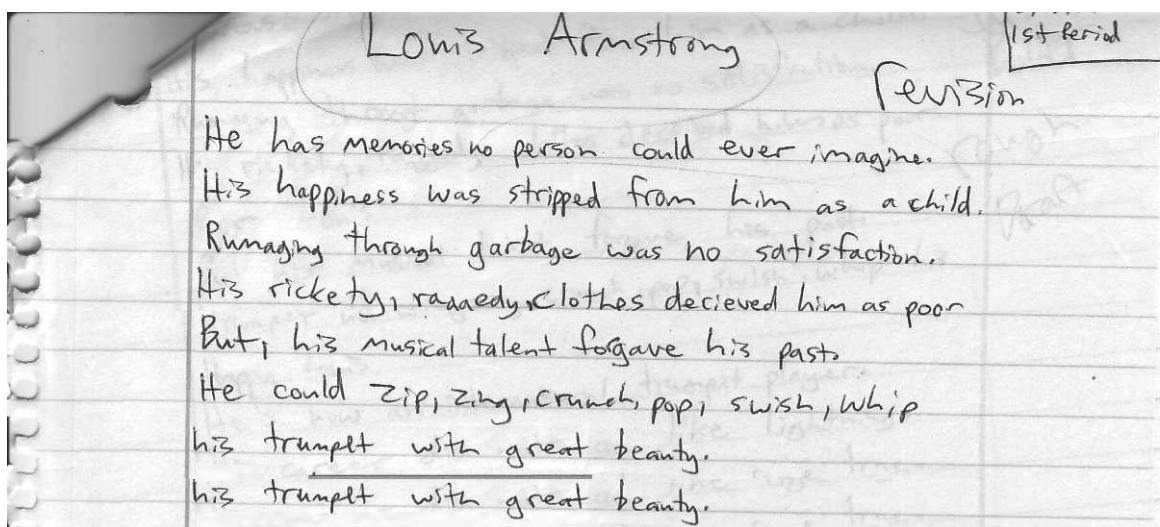 Louis Armstrong
1st Period
revision
He has memories no person could ever imagine.
His happiness was stripped from him as a child.
Rumaging through garbage was no satisfaction.
His rickety, raggedy, clothes decieved him as poor
But, his musical talent forgave his past.
He could zip, zing, crunch, pop, swish, whip
his trumpet with great beauty.
his trumpet with great beauty.